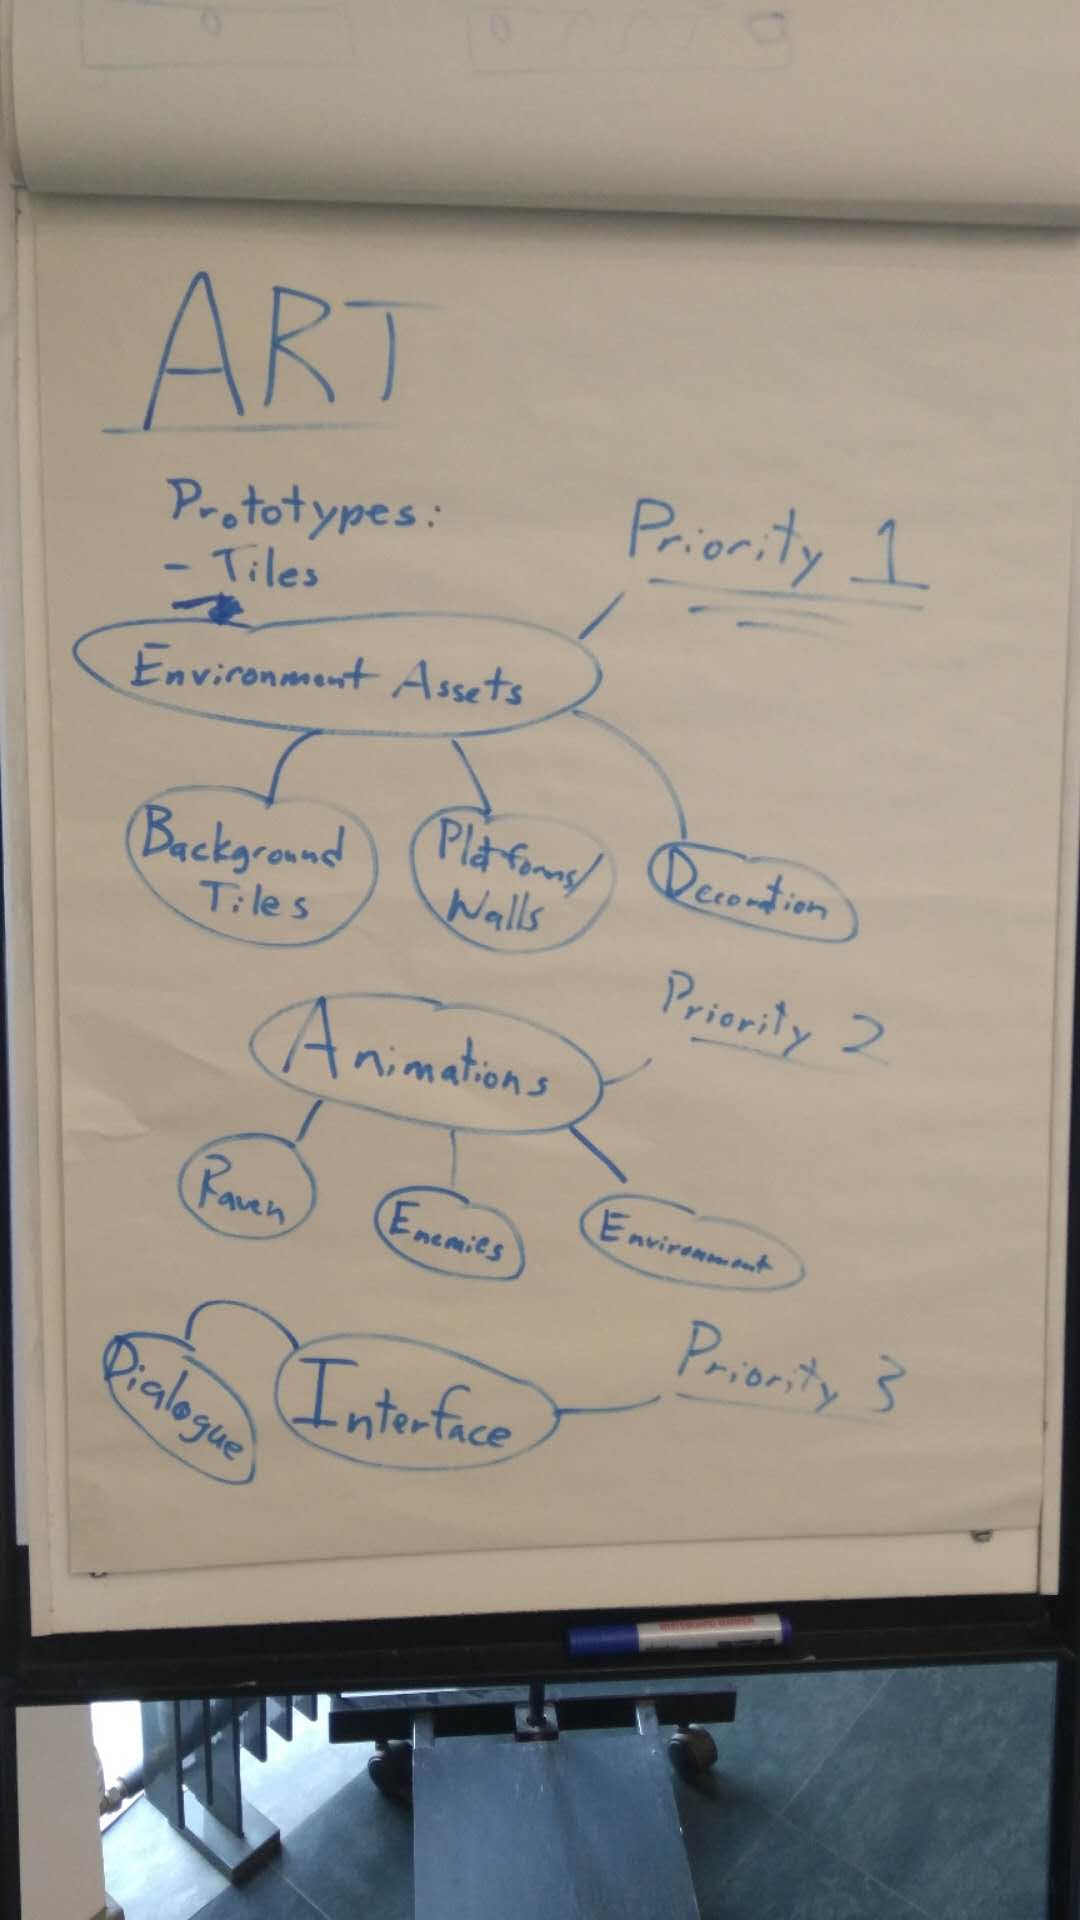 ART
Prototypes:
- Tiles
Priority 1
Environment Assets
Background
Tiles
Platforms/
Walls
Decoration
Priority 2
Animations
Raven
Enemies
Environment
Priority 3
Interface
Dialogue